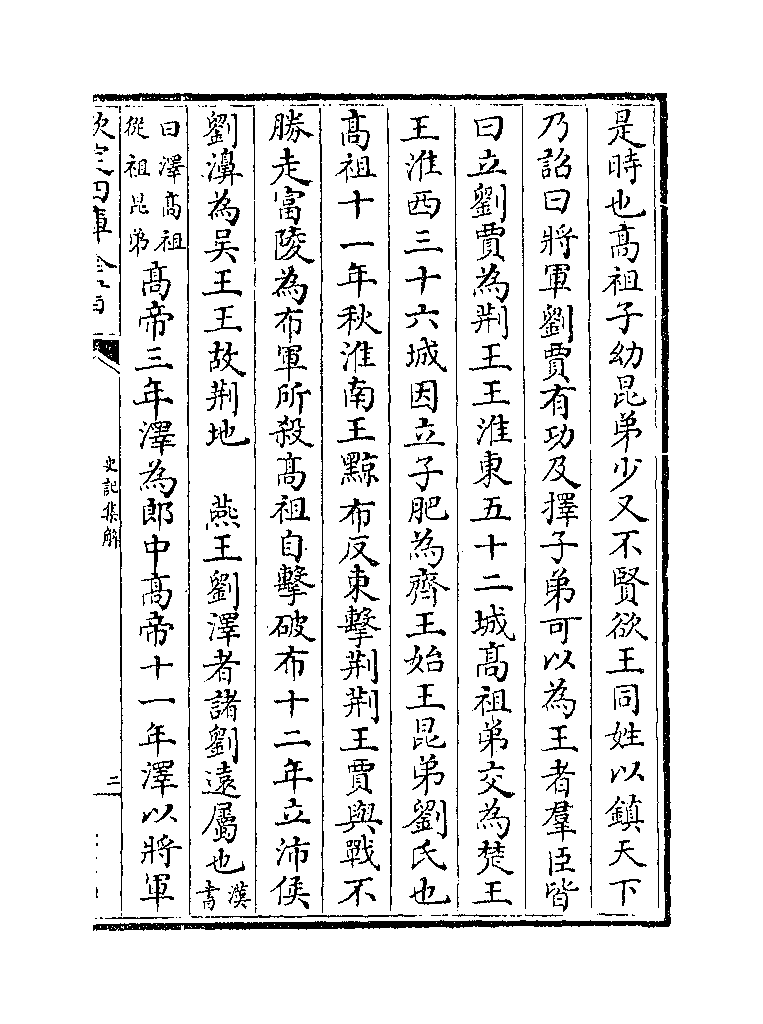 是時也髙祖子幼昆弟少又不賢欲王同姓以鎮天下
乃詔曰將軍劉賈有功及擇子弟可以為王者羣臣皆
曰立劉賈為荆王王淮東五十二城髙祖弟交為楚王
王淮西三十六城因立子肥為齊王始王昆弟劉氏也
髙祖十一年秋淮南王黥布反東擊荆荆王賈與戰不
勝走富陵為布軍所殺髙祖自擊破布十二年立沛侯
劉濞為吴王王故荆地　燕王劉澤者諸劉遠屬也漢書
曰澤髙祖從祖昆弟髙帝三年澤為郎中髙帝十一年澤以將軍
欽定四庫全書
史記集解
二